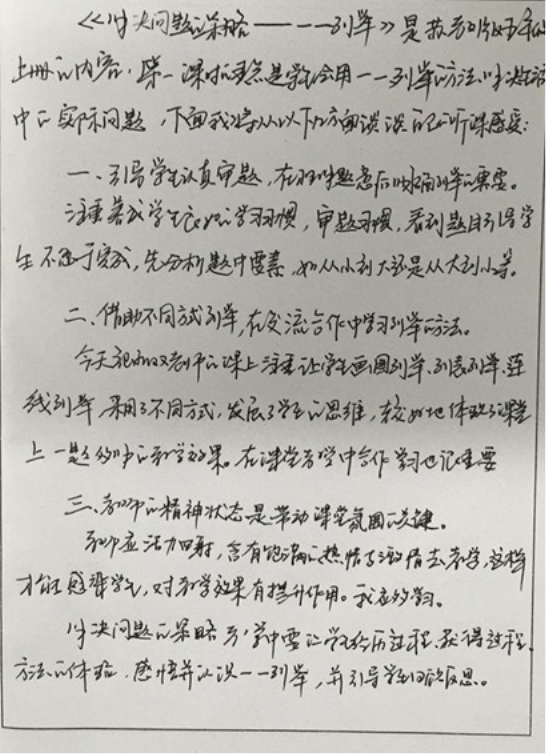 《解决问题的策略——一一列举》是苏教版五年级
上册的内容，第一课时的重点是学会用一一列举的方法解决生活
中的实际问题，下面我将从以下几方面谈谈自己的听课感受：
一、引导学生认真审题，在理解题意后明确列举的需要。
注重养成学生良好的学习习惯，审题习惯，看到题目引导学
生不急于完成，先分析题中要素，如从小到大还是从大到小等。
二、借助不同方式列举，在交流合作中学习列举的方法。
今天老师的课上注重让学生画图列举、列表列举、连
线列举，采用了不同方式，发展了学生的思维，较好地体现了课堂
上一题多解的教学效果。在课堂教学中合作学习也很重要
三、教师的精神状态是带动课堂氛围的关键。
教师应活力四射，含有饱满的热情与激情去教学，这样
才能感染学生，对教学效果有提升作用。我应多学习。
解决问题的策略教学中要让学生经历过程、获得过程、
方法的体验，感悟并认识一一列举，并引导学生回顾反思。